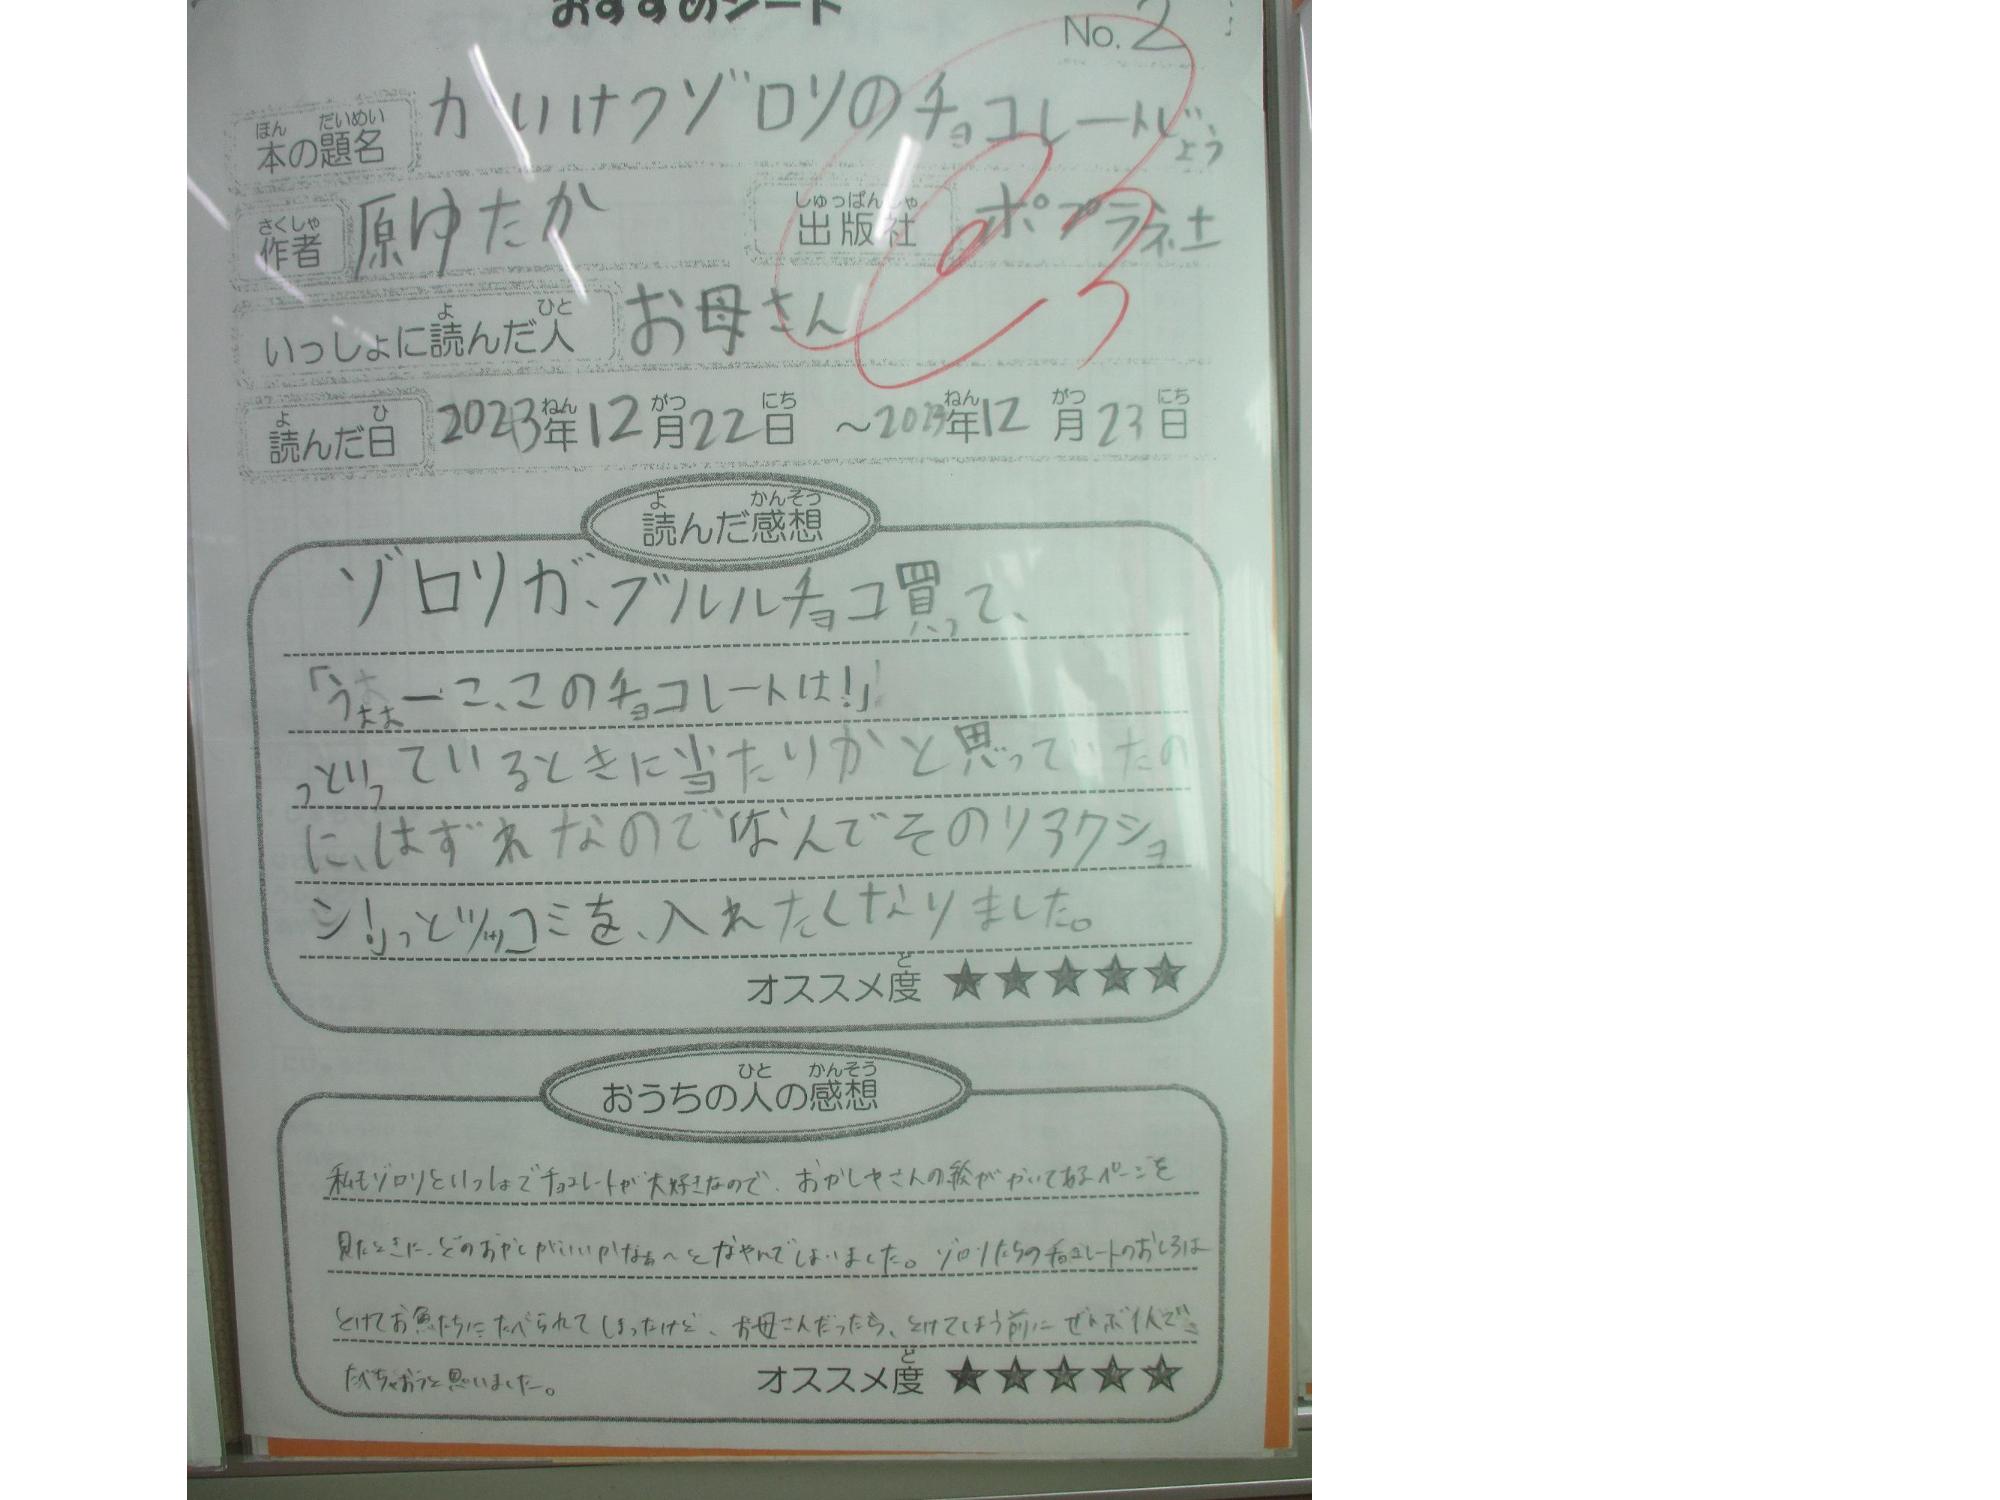 おすすめシート
No. 2
本の題名 かいけつゾロリのチョコレートじょう
作者 原ゆたか 出版社 ポプラ社
いっしょに読んだ人 お母さん
読んだ日 2023年12月22日 ～2023年12月23日
読んだ感想
ゾロリが、ブルルチョコ買って、
「うぉぉーこ、このチョコレートは!」
っといっているときに当たりかと思っていたの
に、はずれなので「なんでそのリアクショ
ン!」っとツッコミを、入れたくなりました。
オススメ度 ★★★★★
おうちの人の感想
私もゾロリといっしょでチョコレートが大好きなので、おかしやさんの絵がかいてあるページを
見たときに、どのおかしがいいかなぁ～となやんでしまいました。ゾロリたちのチョコレートのおしろは
とけてお魚たちにたべられてしまったけど、お母さんだったら、とけてしまう前にぜんぶ1人で
たべちゃおうと思いました。
オススメ度 ★★★★★